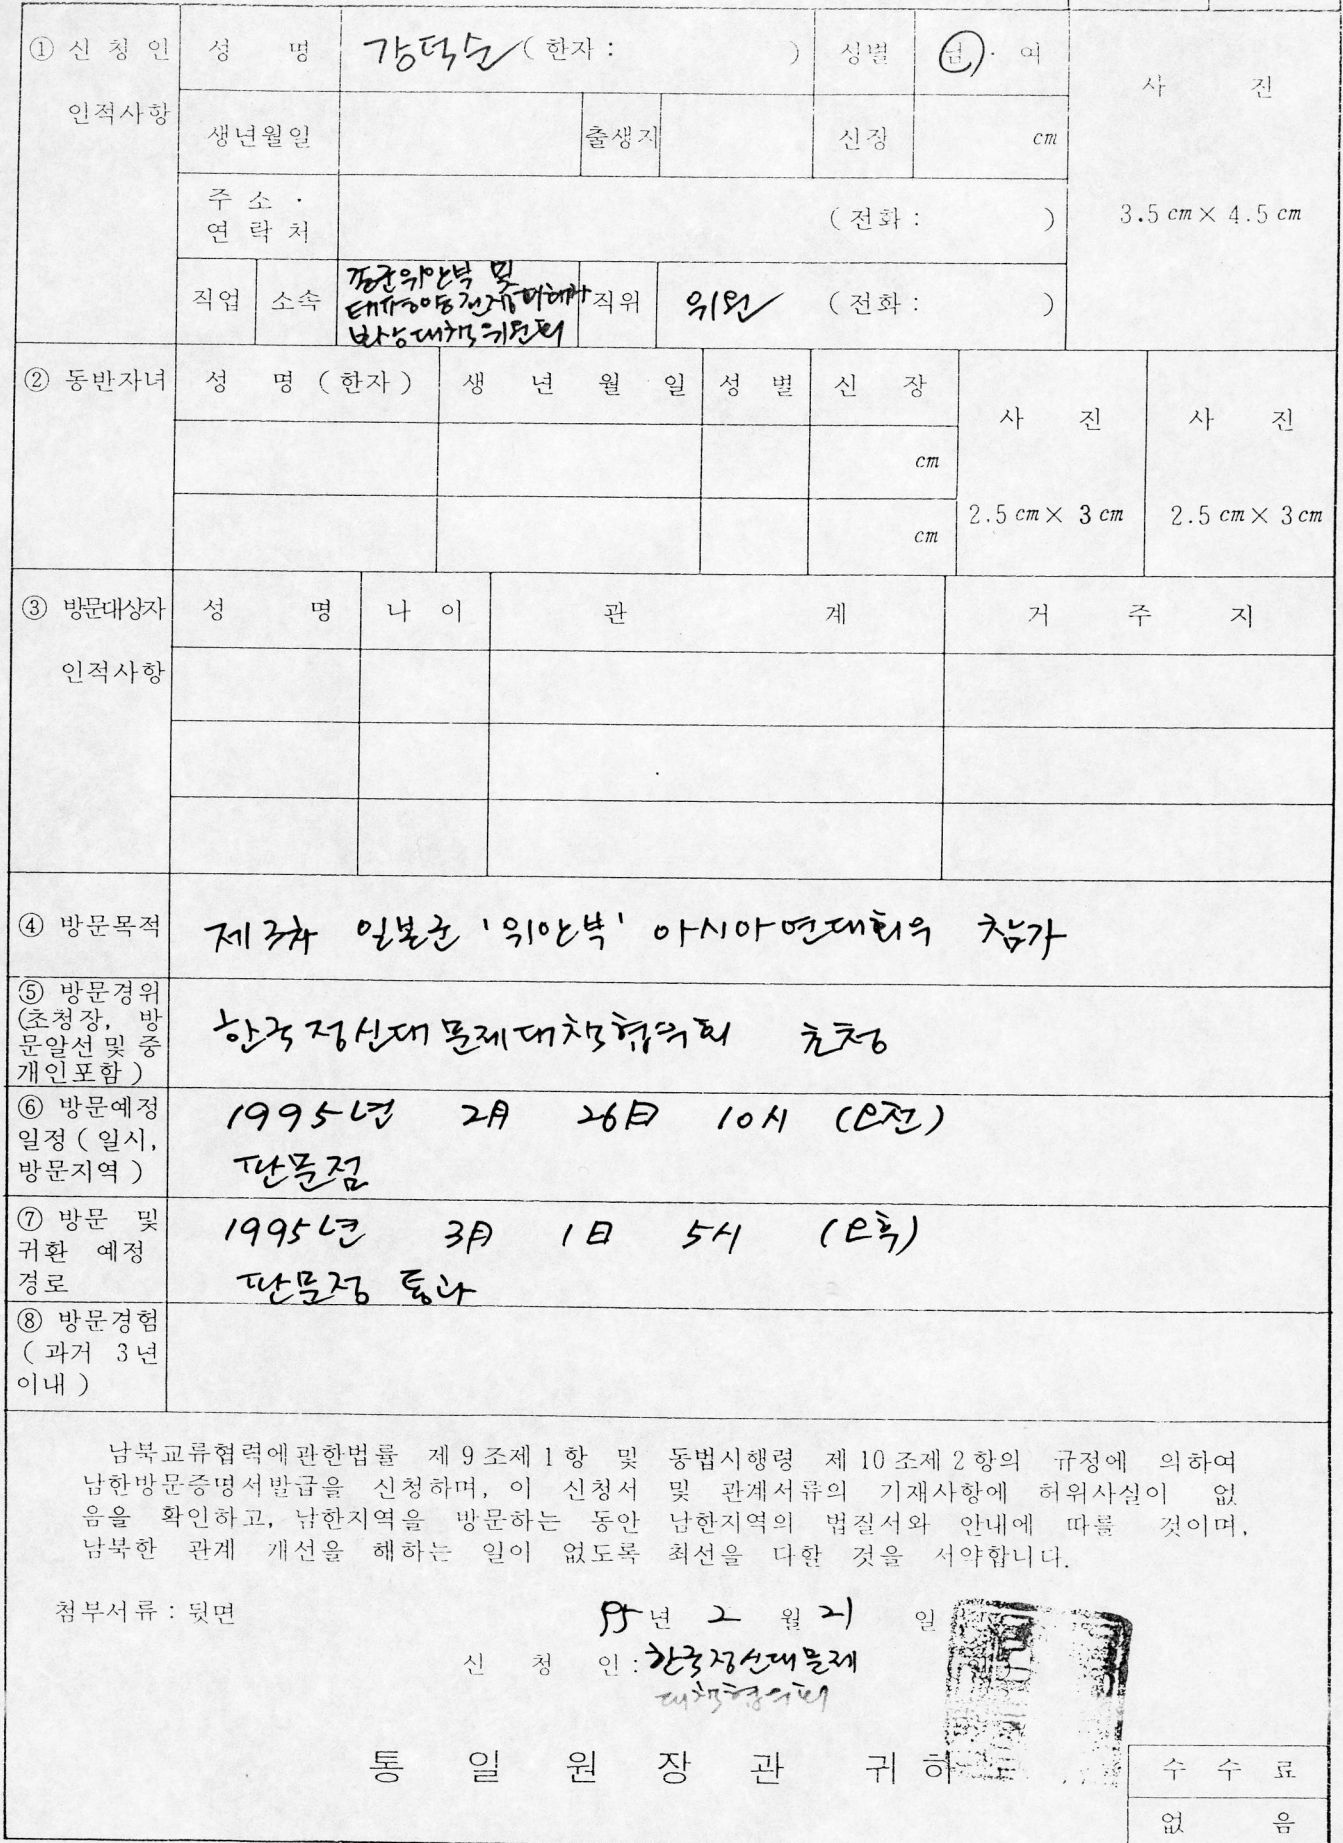 ① 신 청 인 성 명 강덕순 ( 한자 : ) 성별 남 · 여
사 진
인적사항
생년월일 출생지 신장 cm
주 소 ·
연 락 처 ( 전화 : )
3.5 cm × 4.5 cm
직업 소속 종군위안부 및
태평양전쟁피해자
보상대책위원회
직위 위원 ( 전화 : )
② 동반자녀 성 명 ( 한자 ) 생 년 월 일 성 별 신 장
사 진 사 진
cm
2.5 cm × 3 cm 2.5 cm × 3 cm
cm
③ 방문대상자 성 명 나 이 관 계 거 주 지
인적사항
④ 방문목적 제3차 일본군 '위안부' 아시아연대회의 참가
⑤ 방문경위
(초청장, 방
문알선 및 중
개인포함 )
한국정신대문제대책협의회 초청
⑥ 방문예정
일정 ( 일시,
방문지역 )
1995년 2月 26日 10시 (오전)
판문점
⑦ 방문 및
귀환 예정
경로
1995년 3月 1日 5시 (오후)
판문점 통과
⑧ 방문경험
( 과거 3년
이내 )
남북교류협력에관한법률 제 9 조제 1 항 및 동법시행령 제 10 조제 2 항의 규정에 의하여
남한방문증명서발급을 신청하며, 이 신청서 및 관계서류의 기재사항에 허위사실이 없
음을 확인하고, 남한지역을 방문하는 동안 남한지역의 법질서와 안내에 따를 것이며,
남북한 관계 개선을 해하는 일이 없도록 최선을 다할 것을 서약합니다.
첨부서류 : 뒷면
95 년 2 월 21 일
신 청 인 : 한국정신대문제
대책협의회
통 일 원 장 관 귀 하
수 수 료
없 음